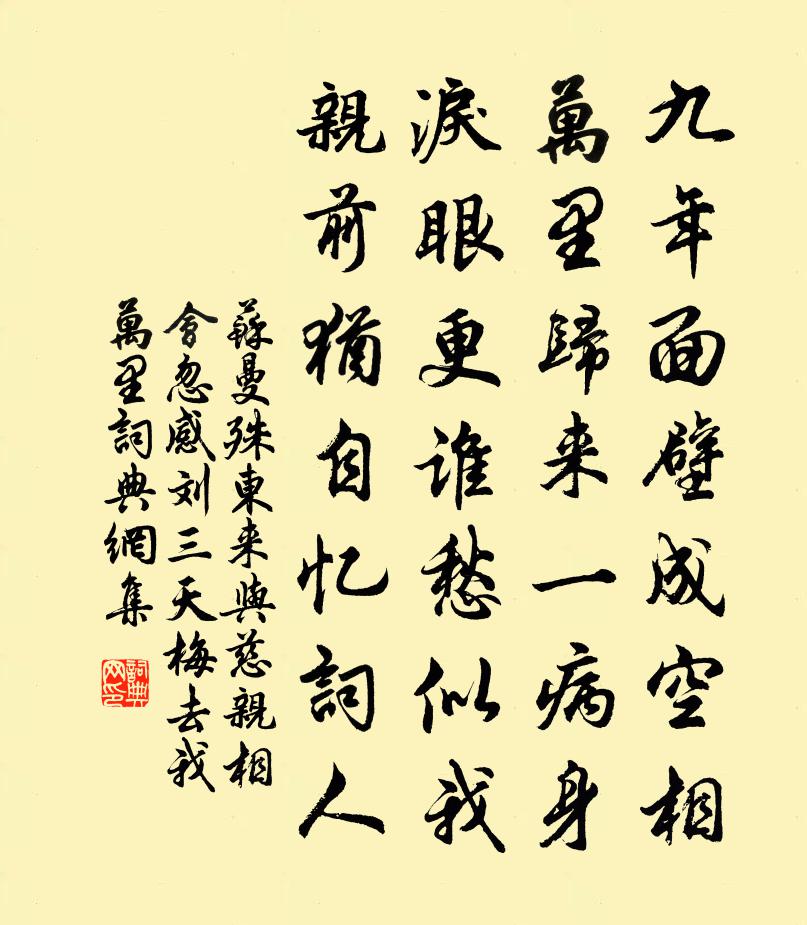 九年面壁成空相
萬里歸来一病身
淚眼更誰愁似我
親前猶自忆詞人
蘇曼殊東来與慈親相
會忽感刘三天梅去我
萬里詞典網集
詞典
网印